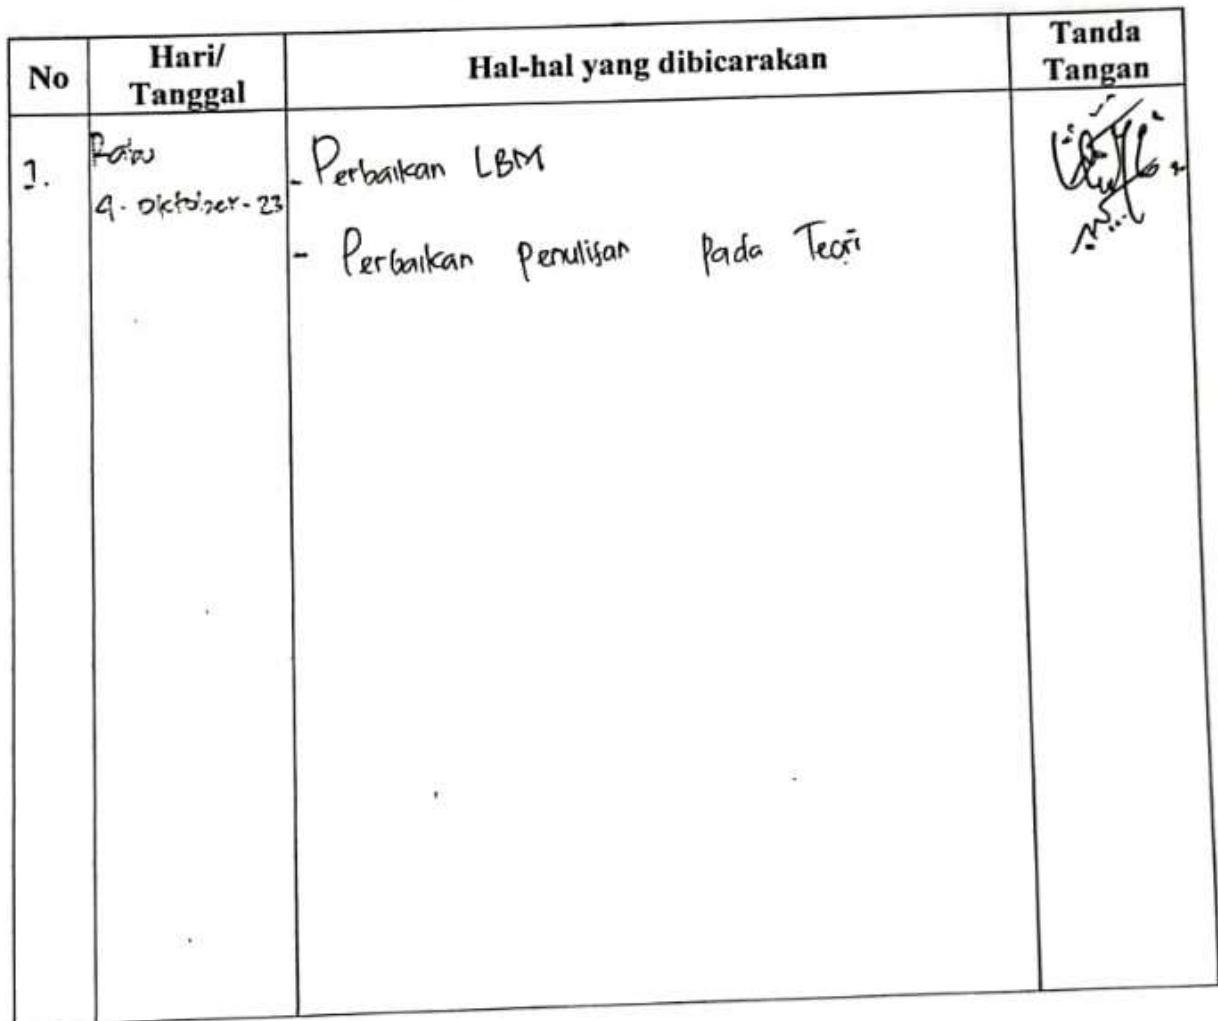 No
Hari/
Tanggal
Hal-hal yang dibicarakan
Tanda
Tangan
1.
Rabu
4 - Oktober - 23
- Perbaikan LBM
- Perbaikan Penulisan Pada Teori